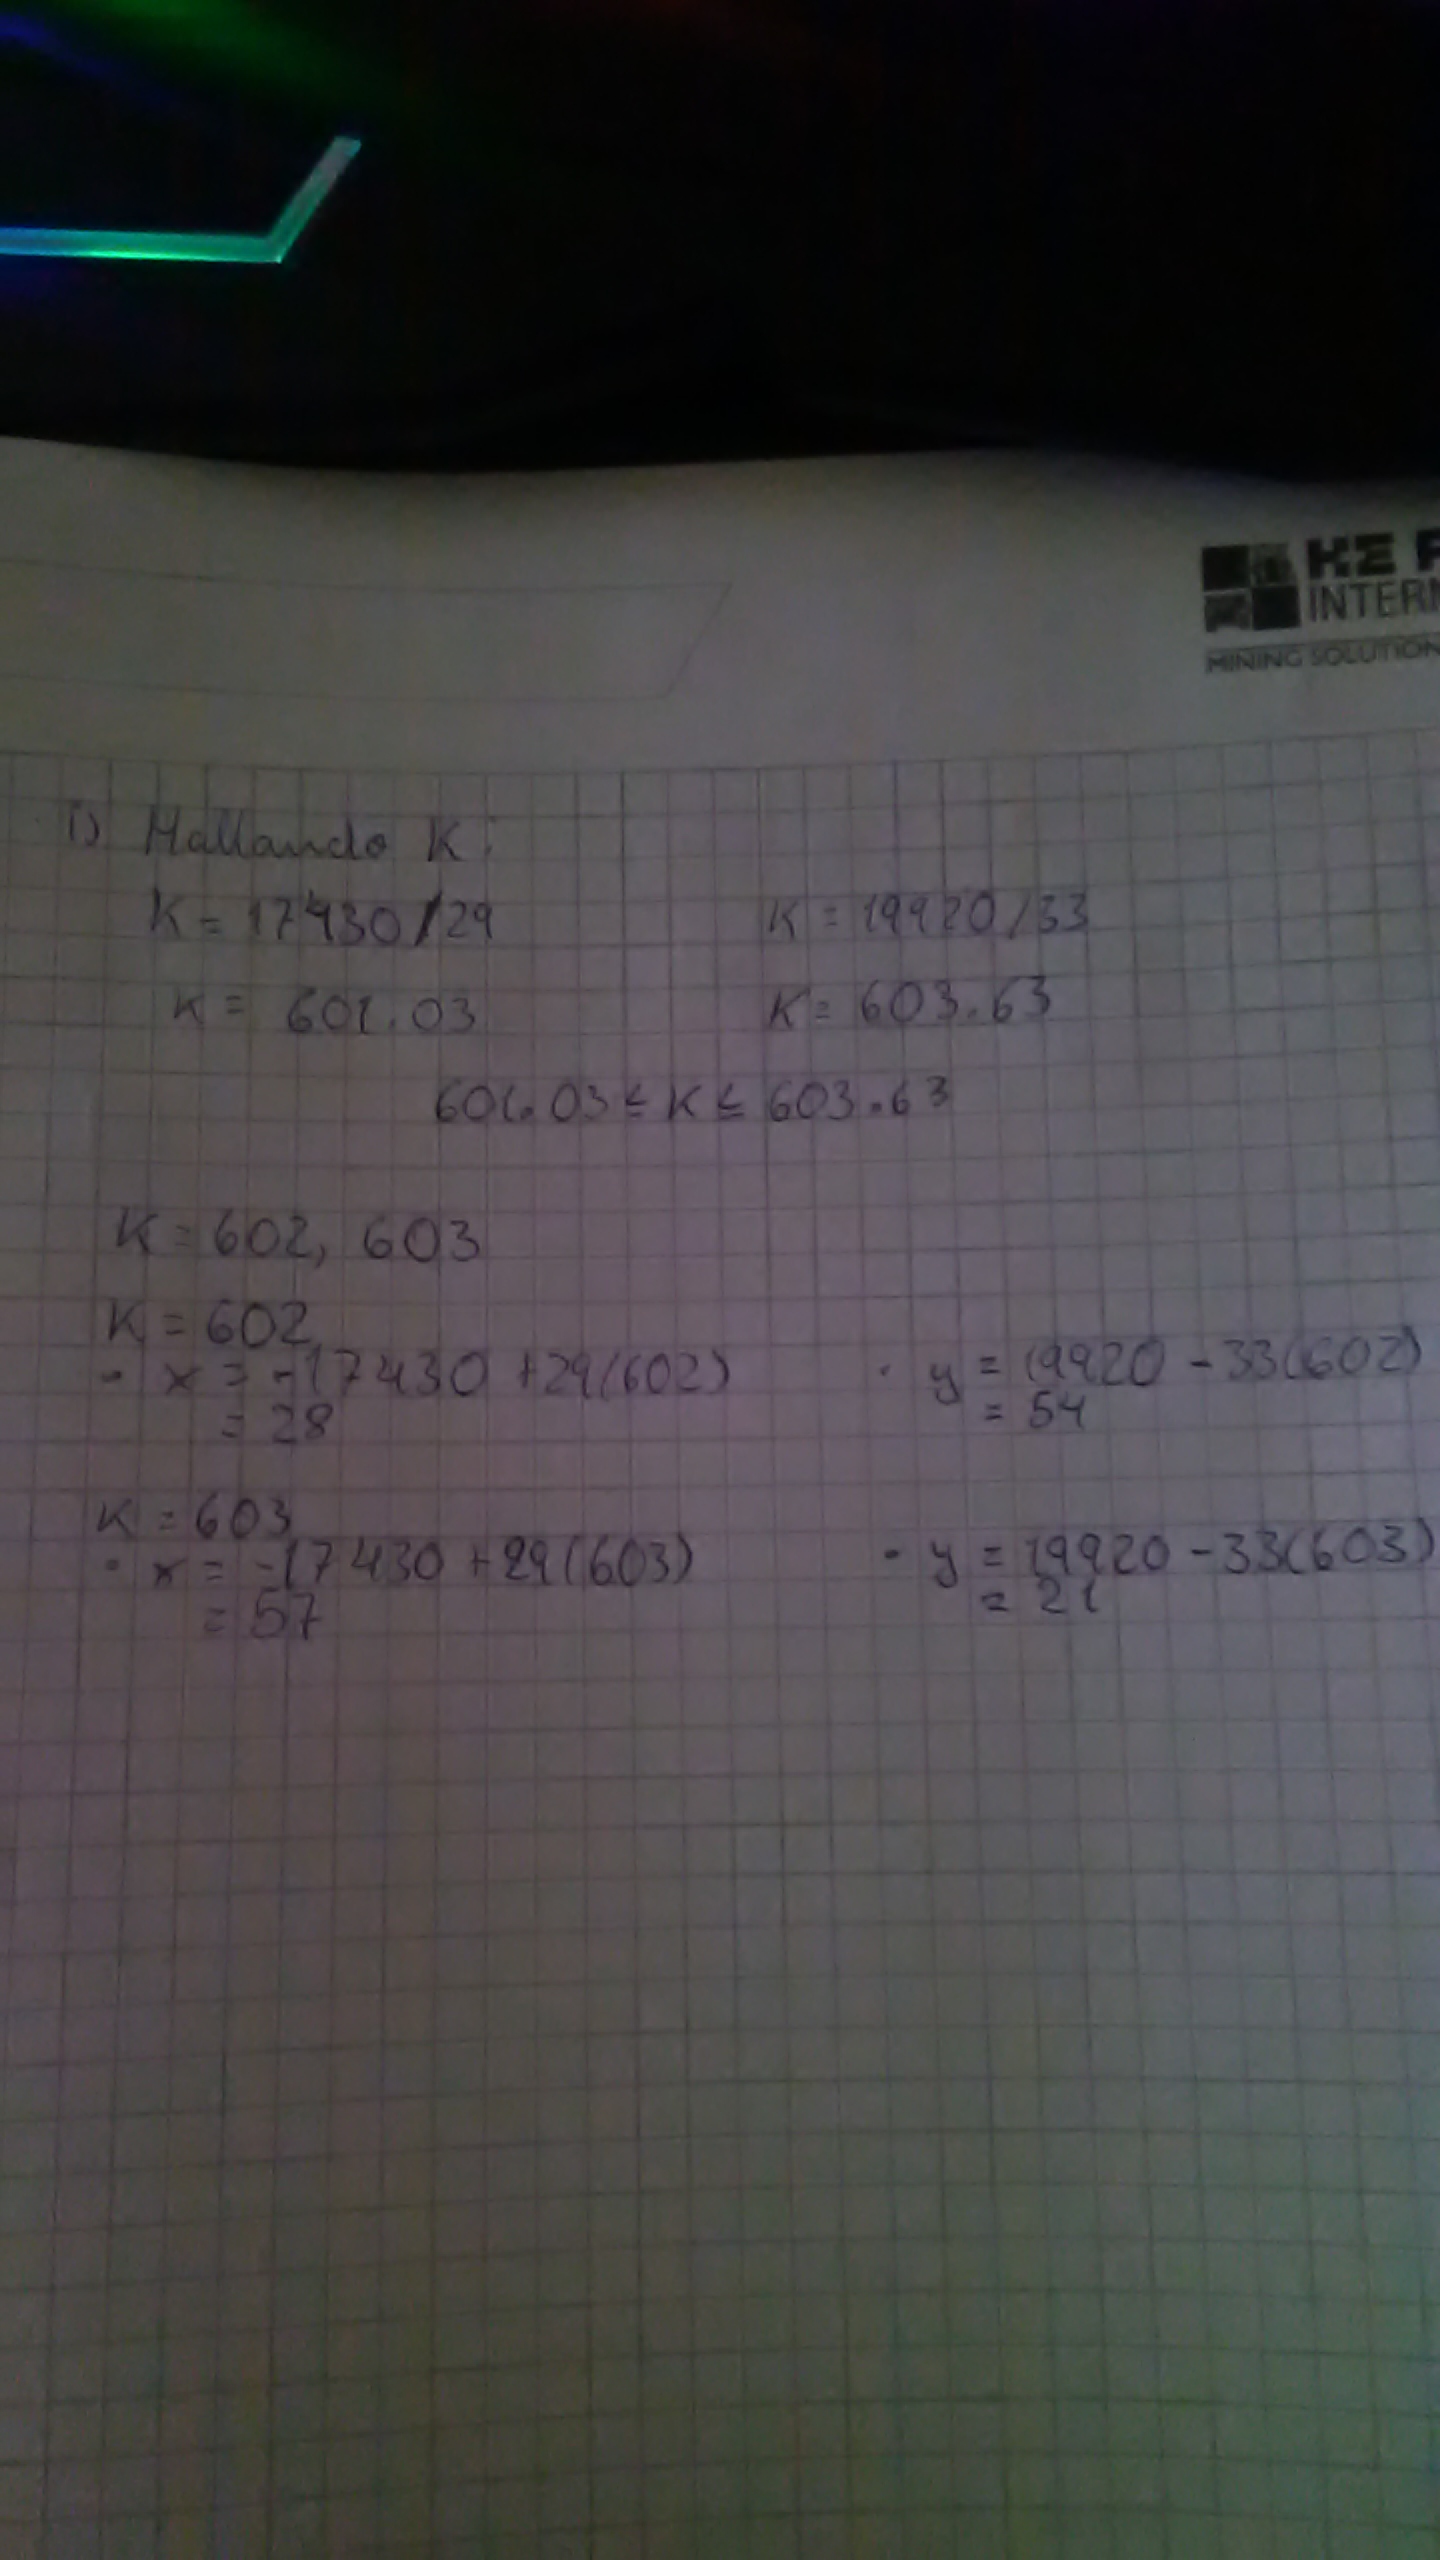 KE
INTER
MINING SOLUTION
i) Hallando K:
K = 17430/29 K = 19920/33
K = 601.03 K = 603.63
601.03 ≤ K ≤ 603.63
K = 602, 603
K = 602
• x = -17430 + 29(602) • y = 19920 - 33(602)
= 28 = 54
K = 603
• x = -17430 + 29(603) • y = 19920 - 33(603)
= 57 = 21